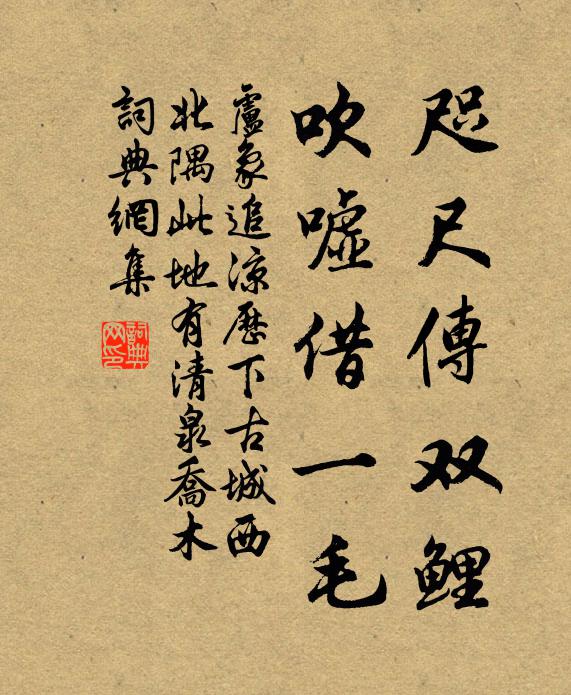 咫尺傳双鲤
吹嘘借一毛
盧象追涼歷下古城西
北隅此地有清泉喬木
詞典網集
詞典网印